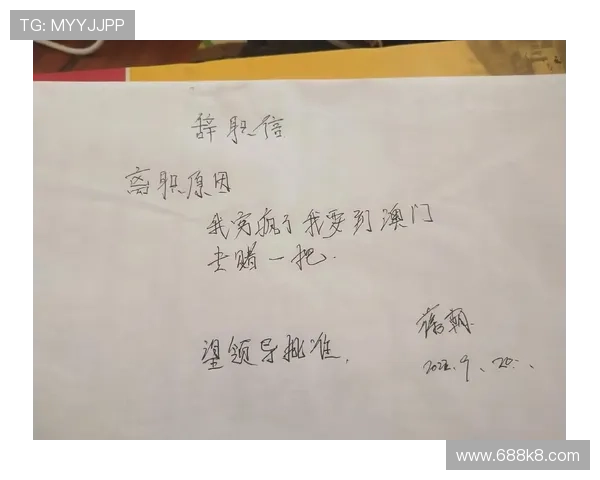 TG: MYYJJPP
辞职信
离职原因
我穷疯了我要到澳门
去赌一把.
望领导批准,
蒋朝
2022.9、20.、
www.688k8.com